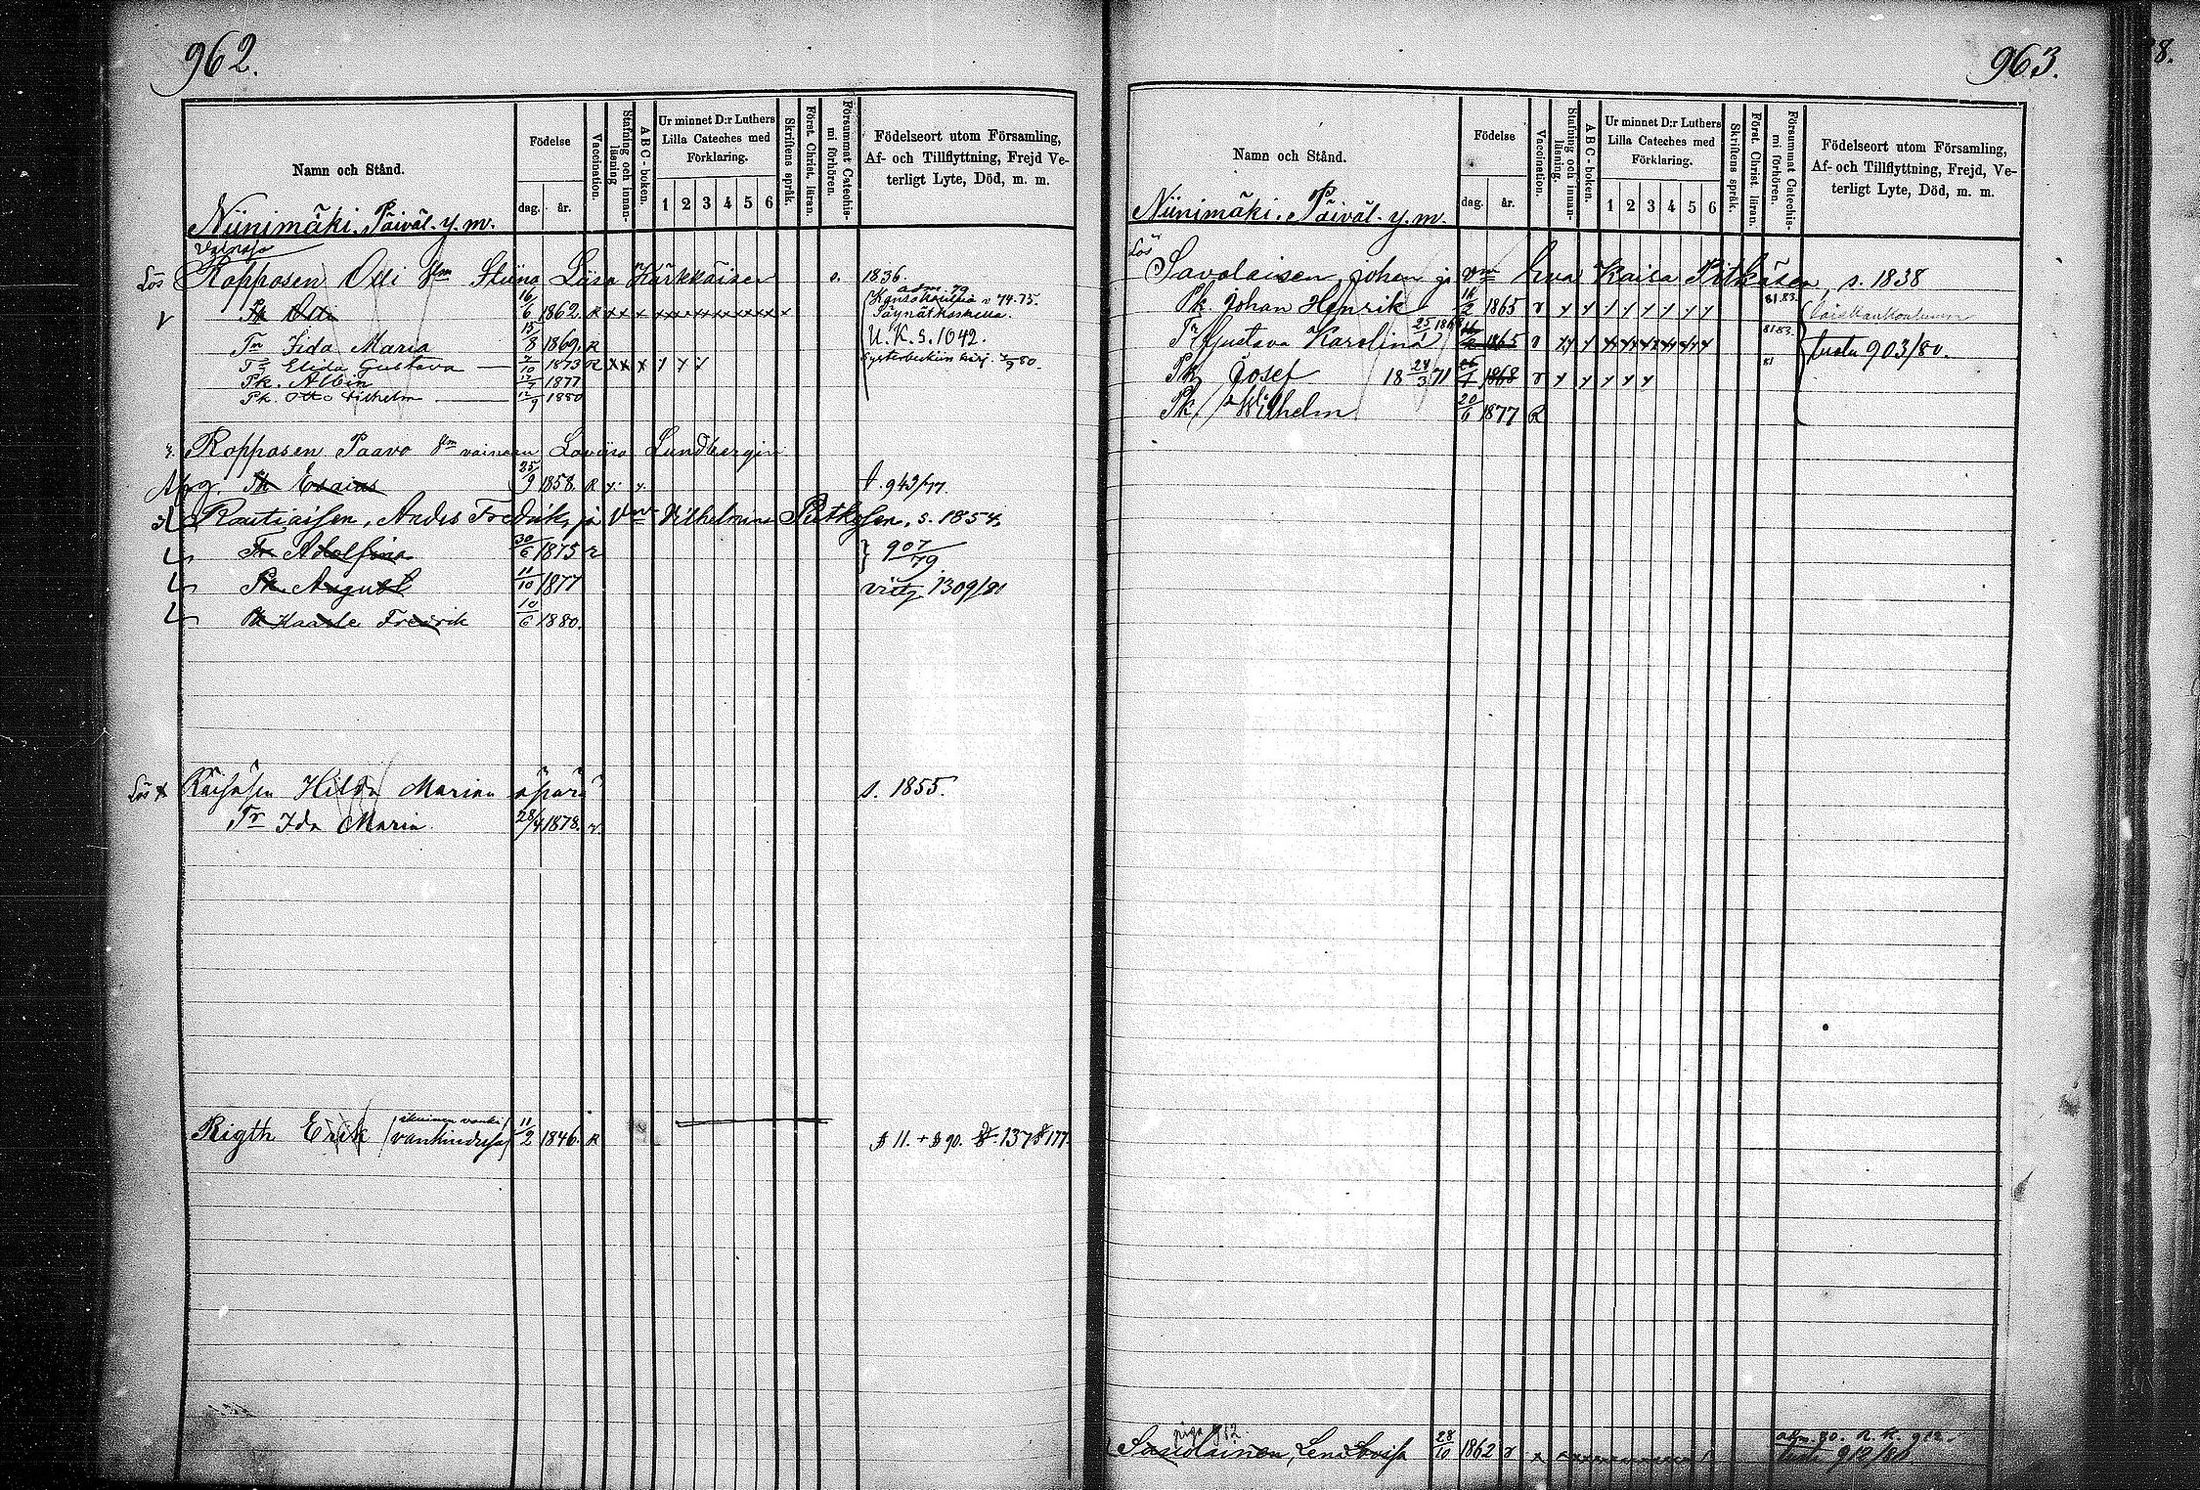 962.
Namn och Stånd.
Födelse
dag.
år.
Vaccination.
Stafning och innan-
läsning
ABC-boken.
Ur minnet D:r Luthers
Lilla Cateches med
Förklaring.
1 2 3 4 5 6
Skriftens språk.
Först. Christ. läran.
Försummat Catechis-
mi förhören.
Födelseort utom Församling,
Af- och Tillflyttning, Frejd Ve-
terligt Lyte, Död, m. m.
Niinimäki. Päiväl. y. m.
Lös Kopposen Olli Stiina Liisa Kärkkäisen 1836.
Pk Olli 16/6 1862. R
Tr Fida Maria 15/8 1869. R U. K. s. 1042.
Tr Elida Gustava 7/10 1873 R
Pk. Albin 1877
Pk. Otto Vilhelm 12/9 1880
Kopposen Paavo vainaan Loviisa Lundbergin
Pk Esaias 25/9 1858. R 943/77.
Rautiaisen, Anders Fredrik, ja Vilhelmina Pitkäsen, s. 1854
Tr Adolfina 30/6 1875 r 907/79
Pk. August 11/10 1877 1309/81
Pk Kaarle Fredrik 10/6 1880.
Lös Räisäsen Hilda Marian äpärä s. 1855.
Tr Ida Maria 28/4 1878. r
Rigth Erik 11/2 1846. R § 11. + § 90. 137 § 177.
963.
Namn och Stånd.
Födelse
dag.
år.
Vaccination.
Stafning och innan-
läsning.
ABC-boken.
Ur minnet D:r Luthers
Lilla Cateches med
Förklaring.
1 2 3 4 5 6
Skriftens språk.
Först. Christ. läran.
Försummat Catechis-
mi förhören.
Födelseort utom Församling,
Af- och Tillflyttning, Frejd, Ve-
terligt Lyte, Död, m. m.
Niinimäki. Päiväl. y. m.
Lös
Savolaisen Johan ja Vm Eeva Kaisa Pitkäsen, s. 1838
Pk. Johan Henrik 16/2 1865 r 81.83.
Tr Gustava Karolina 25/1 1865 r 81 83. tästä 903/80.
Pk Josef 18 24/3 71 1868 r 81
Pk Wilhelm 20/6 1877 R
Savolainen, Lena Lovisa 28/10 1862 r 912/80